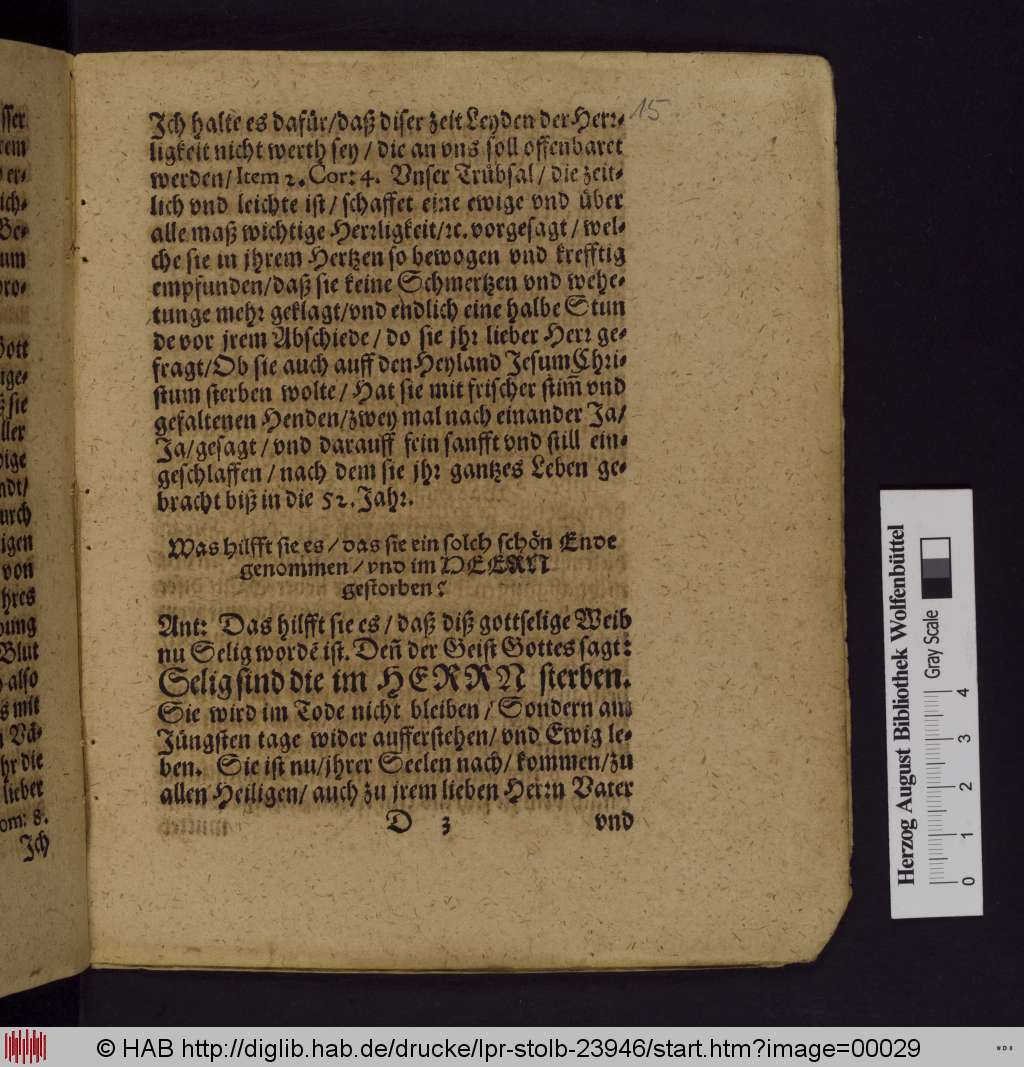 sser
rem
er-
ich-
Be-
um
pro-
Gott
nge-
ß sie
ller
wige
ndt/
urch
igen
von
hres
bung
Blut
also
s mit
n Vä-
hr die
lieber
om: 8.
Ich
15
Ich halte es dafür/daß diser zeit Leyden der Herr-
ligkeit nicht werth sey / die an vns soll offenbaret
werden/ Item 2. Cor: 4. Vnser Trübsal / die zeit-
lich vnd leichte ist / schaffet eine ewige vnd über
alle maß wichtige Herrligkeit/ꝛc. vorgesagt / wel-
che sie in jhrem Hertzen so bewogen vnd krefftig
empfunden/daß sie keine Schmertzen vnd wehe-
tunge mehr geklagt/vnd endlich eine halbe Stun
de vor jrem Abschiede / do sie jhr lieber Herr ge-
fragt/Ob sie auch auff den Heyland Jesum Chri-
stum sterben wolte / Hat sie mit frischer stim̃ vnd
gefaltenen Henden/zwey mal nach einander Ja/
Ja/gesagt / vnd darauff fein sanfft vnd still ein-
geschlaffen / nach dem sie jhr gantzes Leben ge-
bracht biß in die 52. Jahr.
Was hilfft sie es / das sie ein solch schön Ende
genommen / vnd im HEERN
gestorben?
Ant: Das hilfft sie es / daß diß gottselige Weib
nu Selig wordẽ ist. Deñ der Geist Gottes sagt:
Selig sind die im HERRN sterben.
Sie wird im Tode nicht bleiben / Sondern am
Jüngsten tage wider aufferstehen/ vnd Ewig le-
ben. Sie ist nu/jhrer Seelen nach/ kommen/zu
allen Heiligen/ auch zu jrem lieben Herrn Vater
D 3 vnd
Herzog August Bibliothek Wolfenbüttel
Gray Scale
0 1 2 3 4
© HAB http://diglib.hab.de/drucke/lpr-stolb-23946/start.htm?image=00029